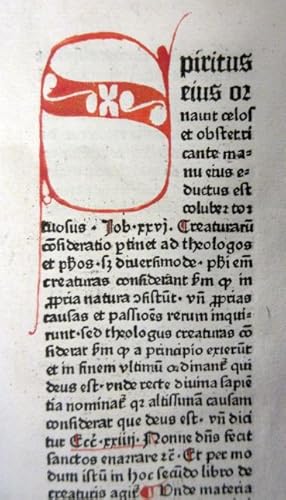 Spiritus
eius or
nauit celos
et obstetri
cante ma-
nu eius e-
ductus est
coluber tor
tuosus · Job·xxvj· Creaturarū
cōsideratio ꝑtinet ad theologos
et pħos· sꝫ diuersimode· pħi em̄
creaturas considerant ẜm ꝙ in
ꝓpria natura ɔsistūt· vn̄ ꝓprias
causas et passiōes rerum inqui
runt·sed theologus creaturas cō
siderat ẜm ꝙ a principio exierūt
et in finem vltimū ordinant᷑ qui
deus est·vnde recte diuina sapiē
tia nominat᷑ qꝛ altissimam causam
considerat que deus est· vn̄ dici
tur Ecc̄·xxiiij· Nonne dn̄s fecit
sanctos enarrare ⁊c̄· Et per mo
dum istū in hoc secūdo libro de
creaturis agit᷑ ¶ Vnde materia